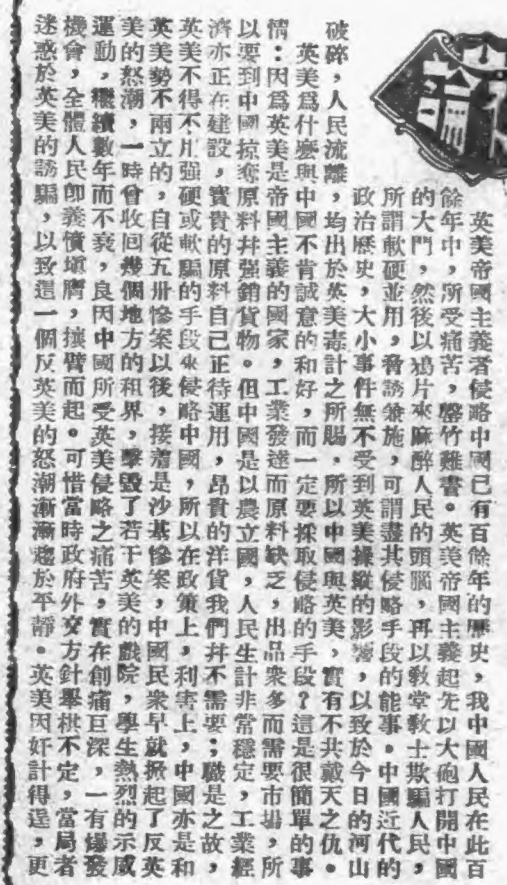 論
英美帝國主義者侵略中國已有百餘年的歷史,我中國人民在此百
餘年中,所受痛苦,罄竹難書。英美帝國主義起先以大砲打開中國
的大門,然後以鴉片來麻醉人民的頭腦,再以敎堂敎士欺騙人民,
所謂軟硬並用,脅誘兼施,可謂盡其侵略手段的能事。中國近代的
政治歷史,大小事件無不受到英美操縱的影響,以致於今日的河山
破碎,人民流離,均出於英美毒計之所賜,所以中國與英美,實有不共戴天之仇。
英美爲什麽與中國不肯誠意的和好,而一定要採取侵略的手段?這是很簡單的事
情:因爲英美是帝國主義的國家,工業發達而原料缺乏,出品衆多而需要市場,所
以要到中國掠奪原料幷強銷貨物。但中國是以農立國,人民生計非常穩定,工業經
濟亦正在建設,寶貴的原料自己正待運用,昂貴的洋貨我們幷不需要;職是之故,
英美不得不用強硬或軟騙的手段來侵略中國,所以在政策上,利害上,中國亦是和
英美勢不兩立的,自從五卅慘案以後,接着是沙基慘案,中國民衆早就掀起了反英
美的怒潮,一時曾收回幾個地方的租界,擊毀了若干英美的戲院,學生熱烈的示威
運動,繼續數年而不衰,良因中國所受英美侵略之痛苦,實在創痛巨深,一有爆發
機會,全體人民卽義憤塡膺,攘臂而起。可惜當時政府外交方針舉棋不定,當局者
迷惑於英美的誘騙,以致這一個反英美的怒潮漸漸趨於平靜。英美因奸計得逞,更